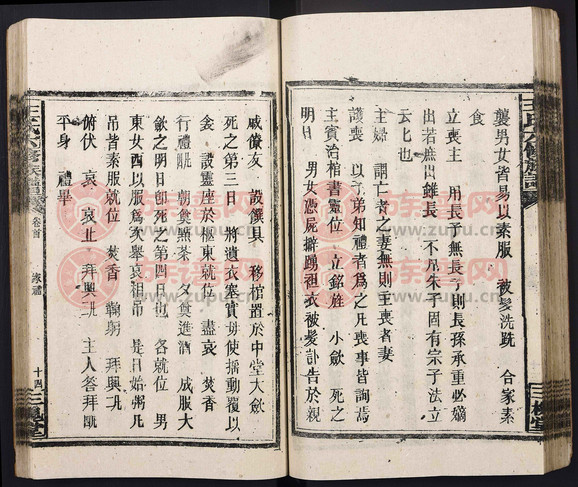 襲男女皆易以素服 被髮洗跣 合家素
食
立喪主 用長子無長子則長孫承重必嫡
出若庶出雖長不用朱子固有宗子法立
云比也
主婦 謂亡者之妻無則主喪者妻
護喪 以子弟知禮者為之凡喪事皆詢焉
主賓治棺書靈位 立銘旌 小歛 死之
明日 男女憑屍擗踴袒衣被髮訃告於親
戚僚友 設饌具 移棺置於中堂大歛
死之第三日 將遺衣塞實毋使搖動覆以
衾 設靈座於柩東就位 盡哀 焚香
行禮 朝奠點茶 夕奠進酒 成服大
歛之明日即死之第四日也 各就位 男
東女西以服為次舉哀相吊 是日始粥凡
吊皆素服就位 焚香 鞠躬 拜興
俯伏 哀 哀止 拜興 主人答拜
平身 禮畢
王氏六修族譜
卷首
十四
三槐堂
族譜网
www.zupu.cn